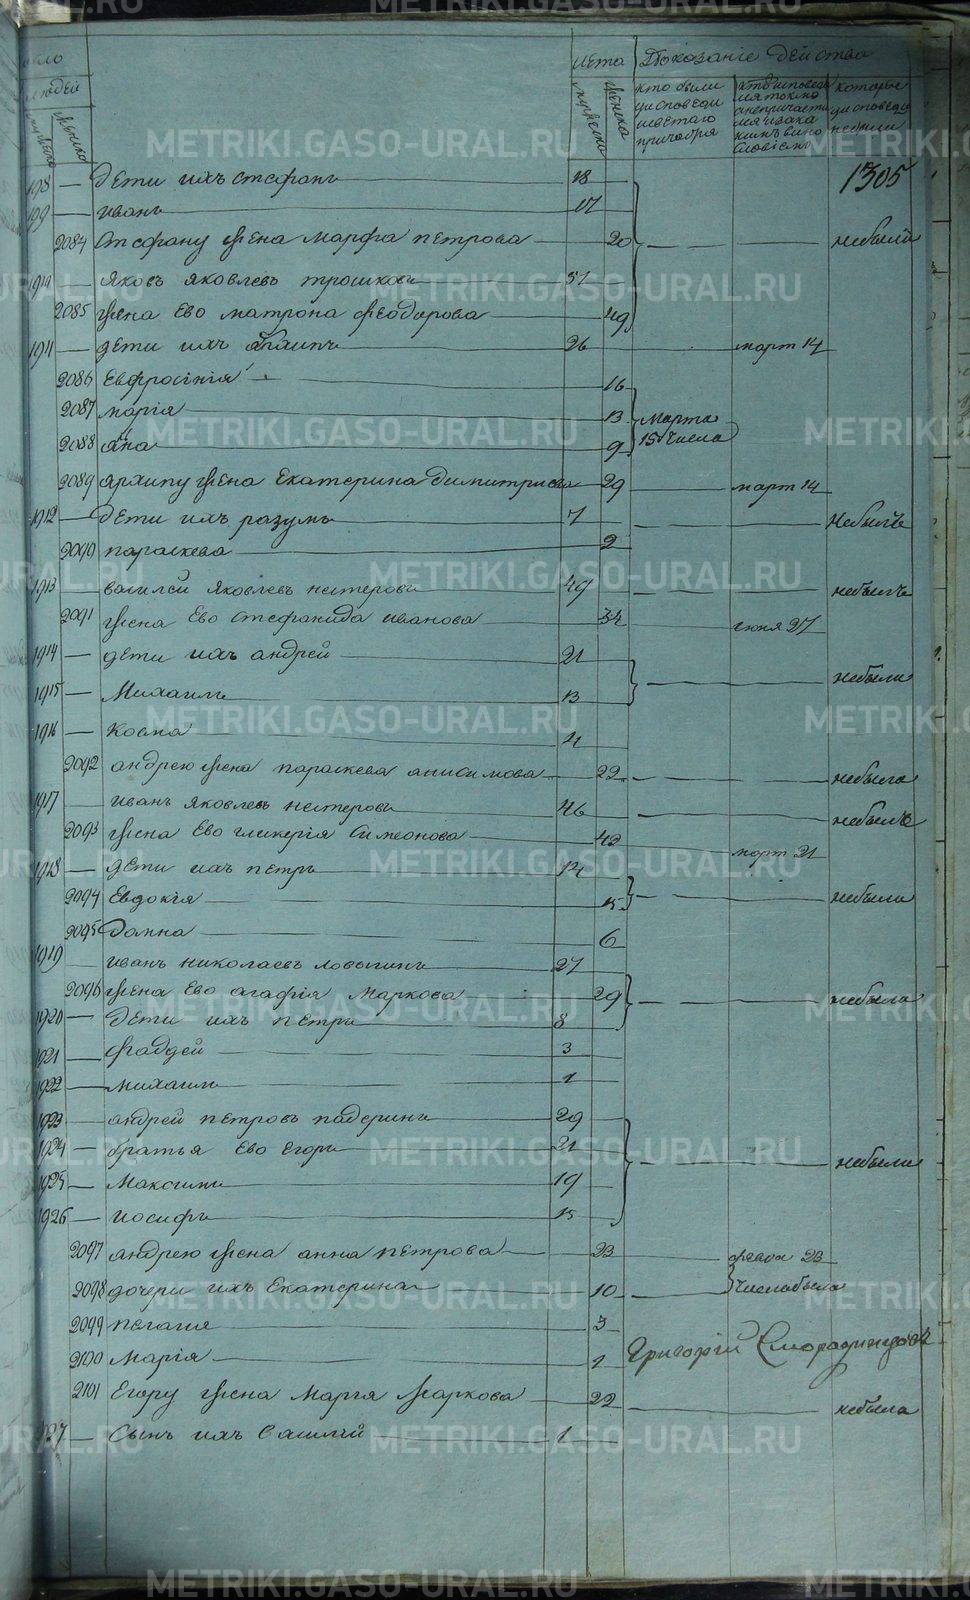 людей
Лета Показанiе действа
мужеска женска
кто были у исповеди и светаго причастiя
которые у исповеди небыли
1305
198 — Дети ихъ стефанъ 18
199 — иванъ 17
2084 Стефану жена марфа петрова 20 небыли
1910 — Яковъ яковлевъ трошковъ 51
2085 жена Ево матрона феодорова 49
1911 — дети ихъ архипъ 26 март 14
2086 Евфросiнiя 16
2087 марiя 13 Марта
2088 Ана 9 15 Числа
2089 архипу жена Екатерина димитриева 29 март 14
1912 — Дети ихъ разумъ 7 небылъ
2090 параскева 2
1913 — василей яковлевъ нестеровъ 49 небылъ
2091 жена Ево стефанида иванова июня 27
1914 — дети ихъ андрей 21 небыли
1915 — Михаилъ 13
1916 — Козма 4
2092 андрею жена параскева анисимова 22 небыла
1917 иванъ яковлевъ нестеровъ 46 небылъ
2093 жена Ево гликерiя Симеонова 42 март 21
1918 — дети ихъ петръ 14
2094 Евдокiя 15 небыли
2095 Домна 6
1919 иванъ николаевъ ловыгинъ 27
2096 жена Ево агафiя Маркова 29 небыла
1920 — Дети ихъ петръ 8
1921 — фаддей 3
1922 — михаилъ 1
1923 — андрей петровъ падеринъ 29
1924 — братья Ево Егоръ 21 небыли
1925 — Максимъ 19
1926 — иосифъ 15
2097 андрею жена анна петрова 23 февра 23
2098 дочери ихъ Екатерина 10 Числа была
2099 пелагiя 3
2100 Марiя 1 Григорiй
2101 Егору жена Марiя Маркова 22 небыла
1927 — Сынъ ихъ Василей 1
METRIKI.GASO-URAL.RU